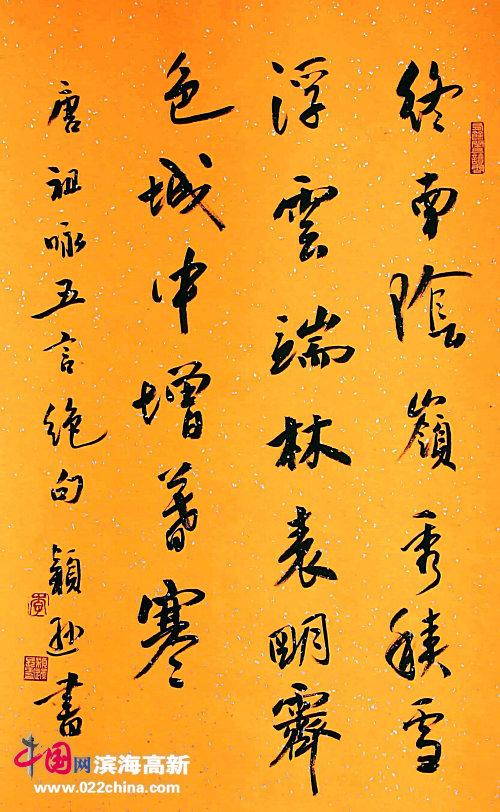 終南陰嶺秀積雪
浮雲端林表明霽
色城中增暮寒
唐祖咏五言絶句 穎逊書
中国网 滨海高新
www.022china.com